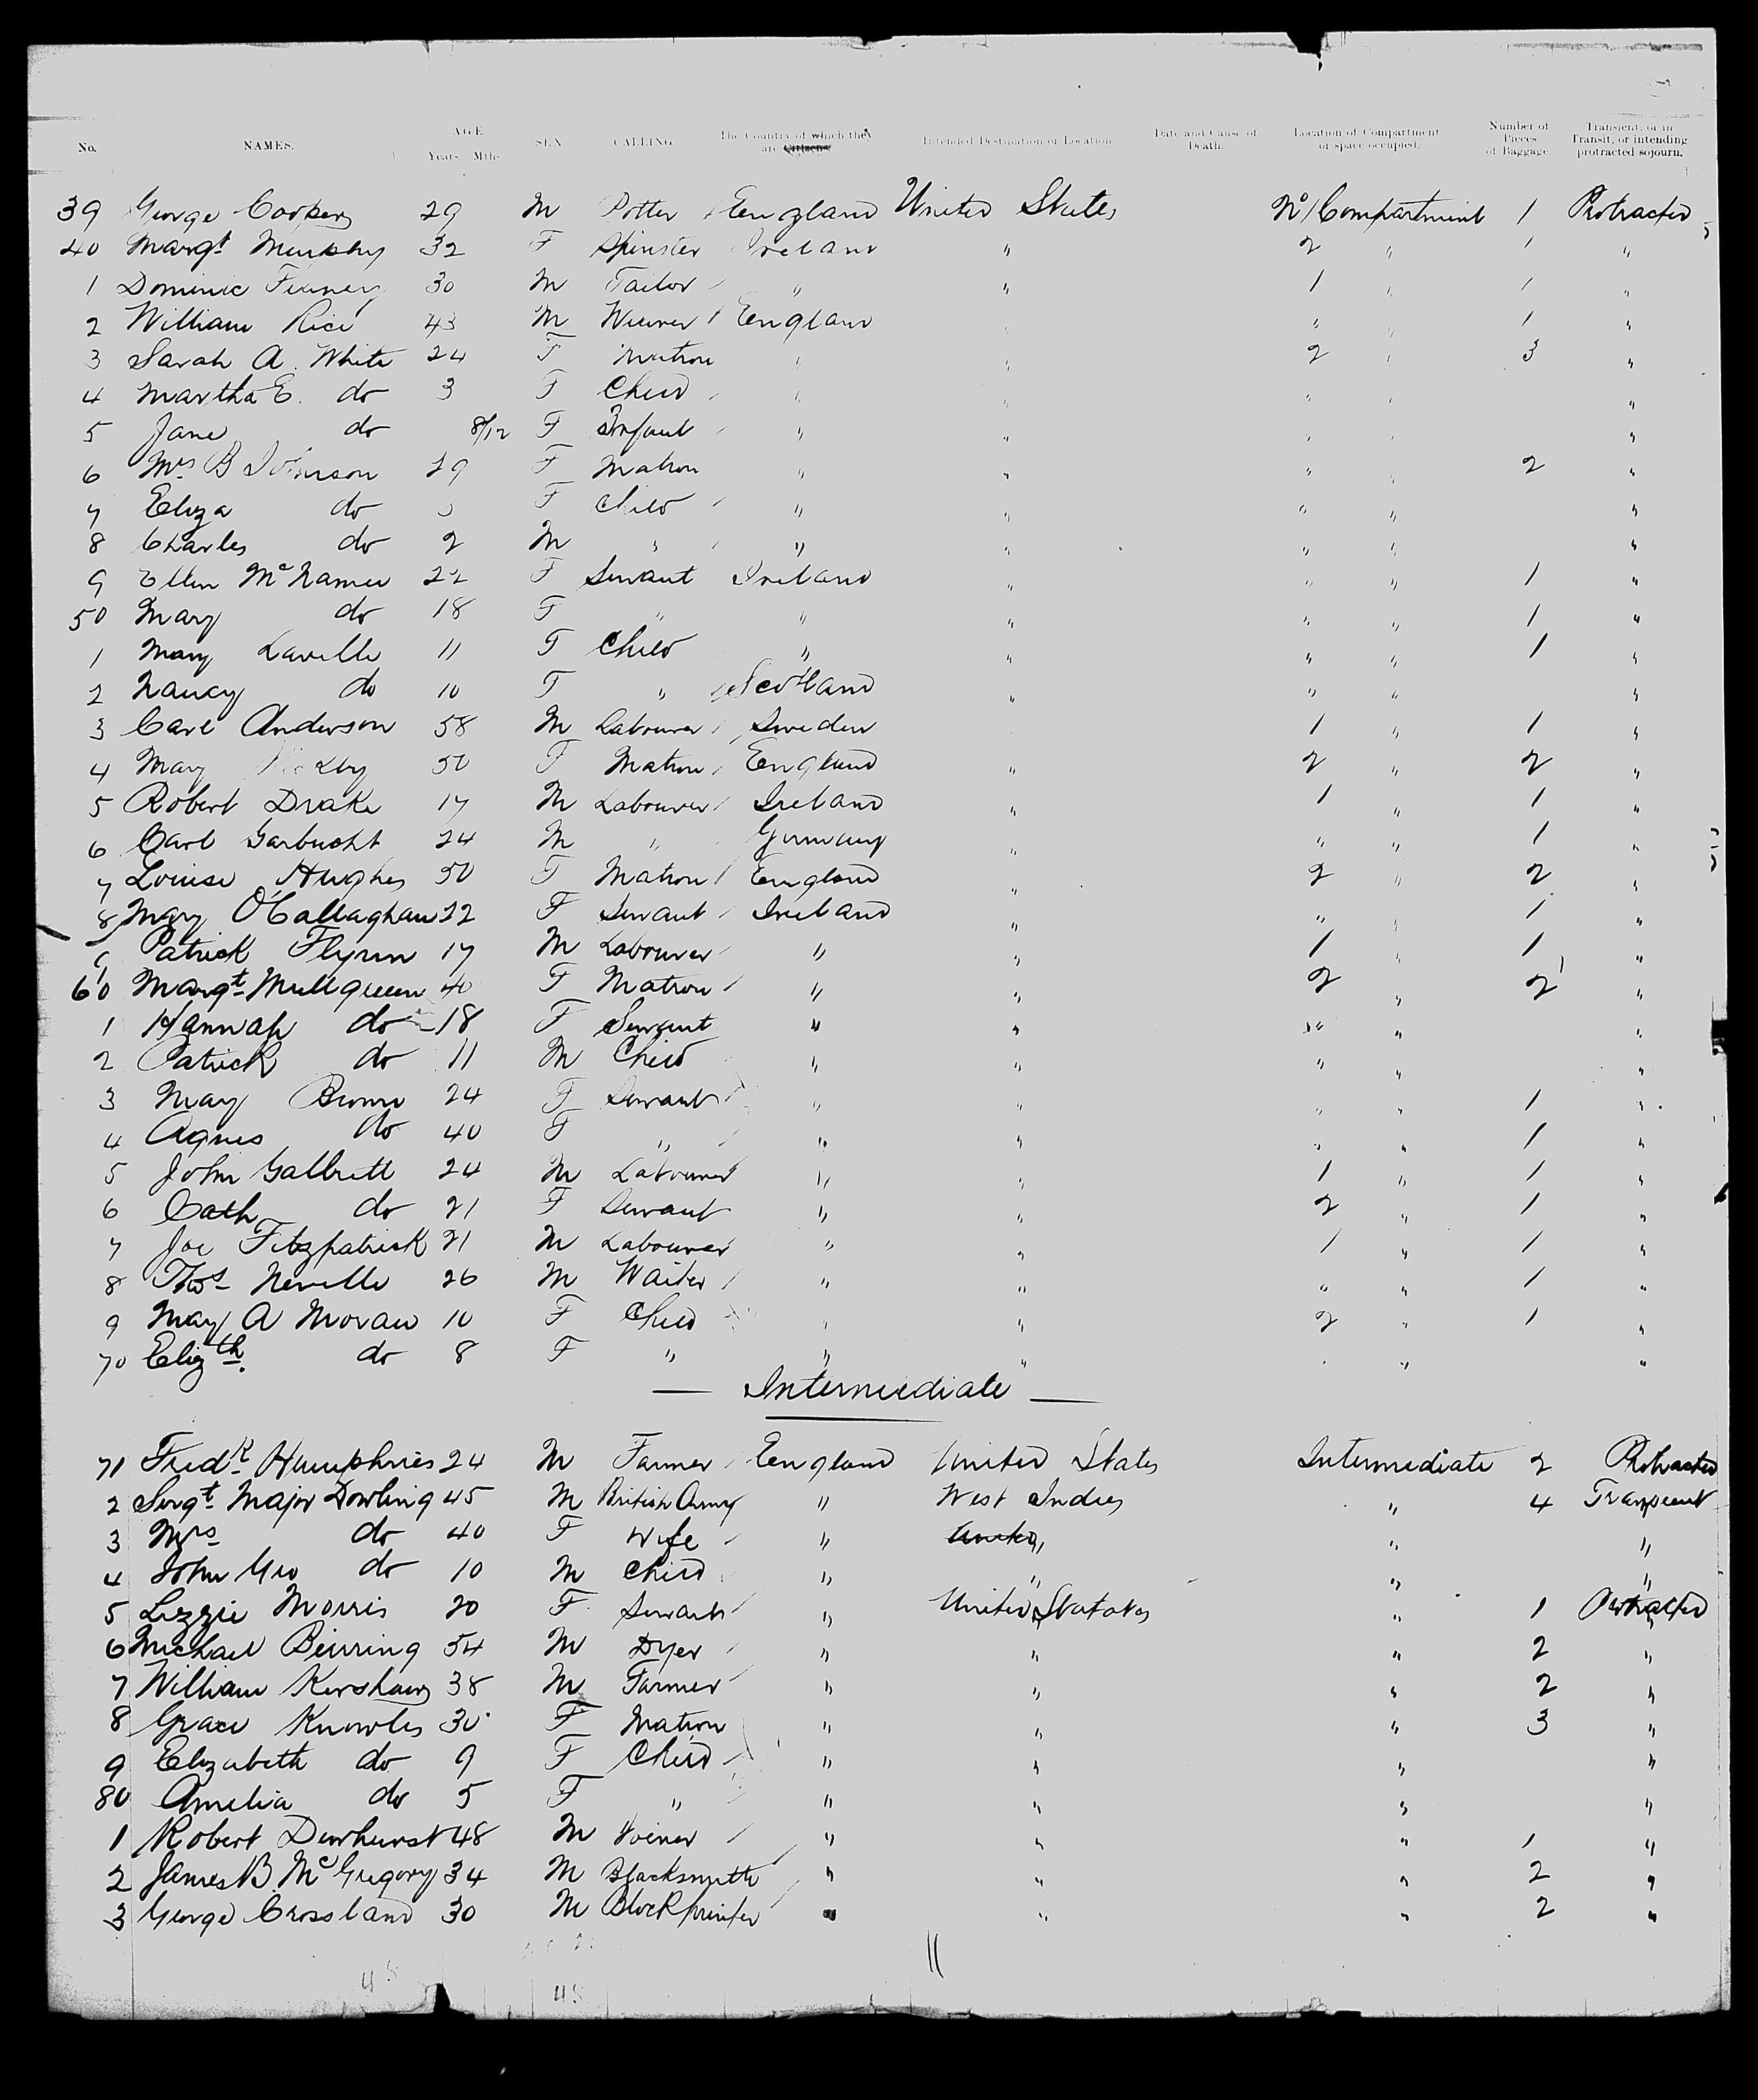 No. NAMES. AGE Years. Mths. SEX CALLING The Country of which they are Citizens Intended Destination or Location. Date and Cause of Death. Location of Compartment or space occupied. Number of Pieces of Baggage. Transient, or in Transit, or intending protracted sojourn.
39 George Cooper 29 M Potter England United States No 1 Compartment 1 Protracted
40 Margt Murphy 32 F Spinster Ireland " 2 " 1 "
1 Dominic 30 M Tailor " " 1 " 1 "
2 William Rice 43 M Weaver England " " 1 "
3 Sarah A. White 24 F Matron " " 2 " 3 "
4 Martha E. do 3 F Child " " " " "
5 Jane do 8/12 F Infant " " " " "
6 Mrs B Johnson 29 F Matron " " " " 2 "
7 Eliza do F Child " " " " "
8 Charles do 2 M " " " " " "
9 Ellen McNamee 22 F Servant Ireland " " " 1 "
50 Mary do 18 F " " " " " 1 "
1 Mary Lavelle 11 F Child " " " " 1 "
2 Nancy do 10 F " Scotland " " " "
3 Carl Anderson 58 M Labourer Sweden 1 " 1 "
4 Mary 50 F Matron England " 2 " 2 "
5 Robert Drake 17 M Labourer Ireland " 1 " 1 "
6 Carl Garbucht 24 M " Germany " " " 1 "
7 Louise Hughes 50 F Matron England " 2 " 2 "
8 Mary O'Callaghan 22 F Servant Ireland " " " 1 "
9 Patrick Flynn 17 M Labourer " " 1 " 1 "
60 Margt Mullqueen 40 F Matron " " 2 " 2 "
1 Hannah do 18 F Servant " " " " "
2 Patrick do 11 M Child " " " " "
3 Mary Browne 24 F Servant " " " " 1 "
4 Agnes do 40 F " " " " " 1 "
5 John Galbrett 24 M Labourer " " 1 " 1 "
6 Cath do 21 F Servant " " 2 " 1 "
7 Joe Fitzpatrick 21 M Labourer " " 1 " 1 "
8 Thos Neville 26 M Waiter " " " " 1 "
9 Mary A Moran 10 F Child " " 2 " 1 "
70 Elizth. do 8 F " " " " " "
— Intermediate —
71 Fredk Humphries 24 M Farmer England United States Intermediate 2 Protracted
2 Sergt Major Dowling 45 M British Army " West Indies " 4 Transient
3 Mrs do 40 F Wife " " " "
4 John Geo do 10 M Child " " " "
5 Lizzie Morris 20 F Servant " United States " 1 Protracted
6 Michael Beirring 54 M Dyer " " " 2 "
7 William Kershaw 38 M Farmer " " " 2 "
8 Grace Knowles 30 F Matron " " " 3 "
9 Elizabeth do 9 F Child " " " "
80 Amelia do 5 F " " " " "
1 Robert Dewhurst 48 M Joiner " " " 1 "
2 James B. McGregory 34 M Blacksmith " " " 2 "
3 George Crossland 30 M Block printer " " " 2 "
11
48
48